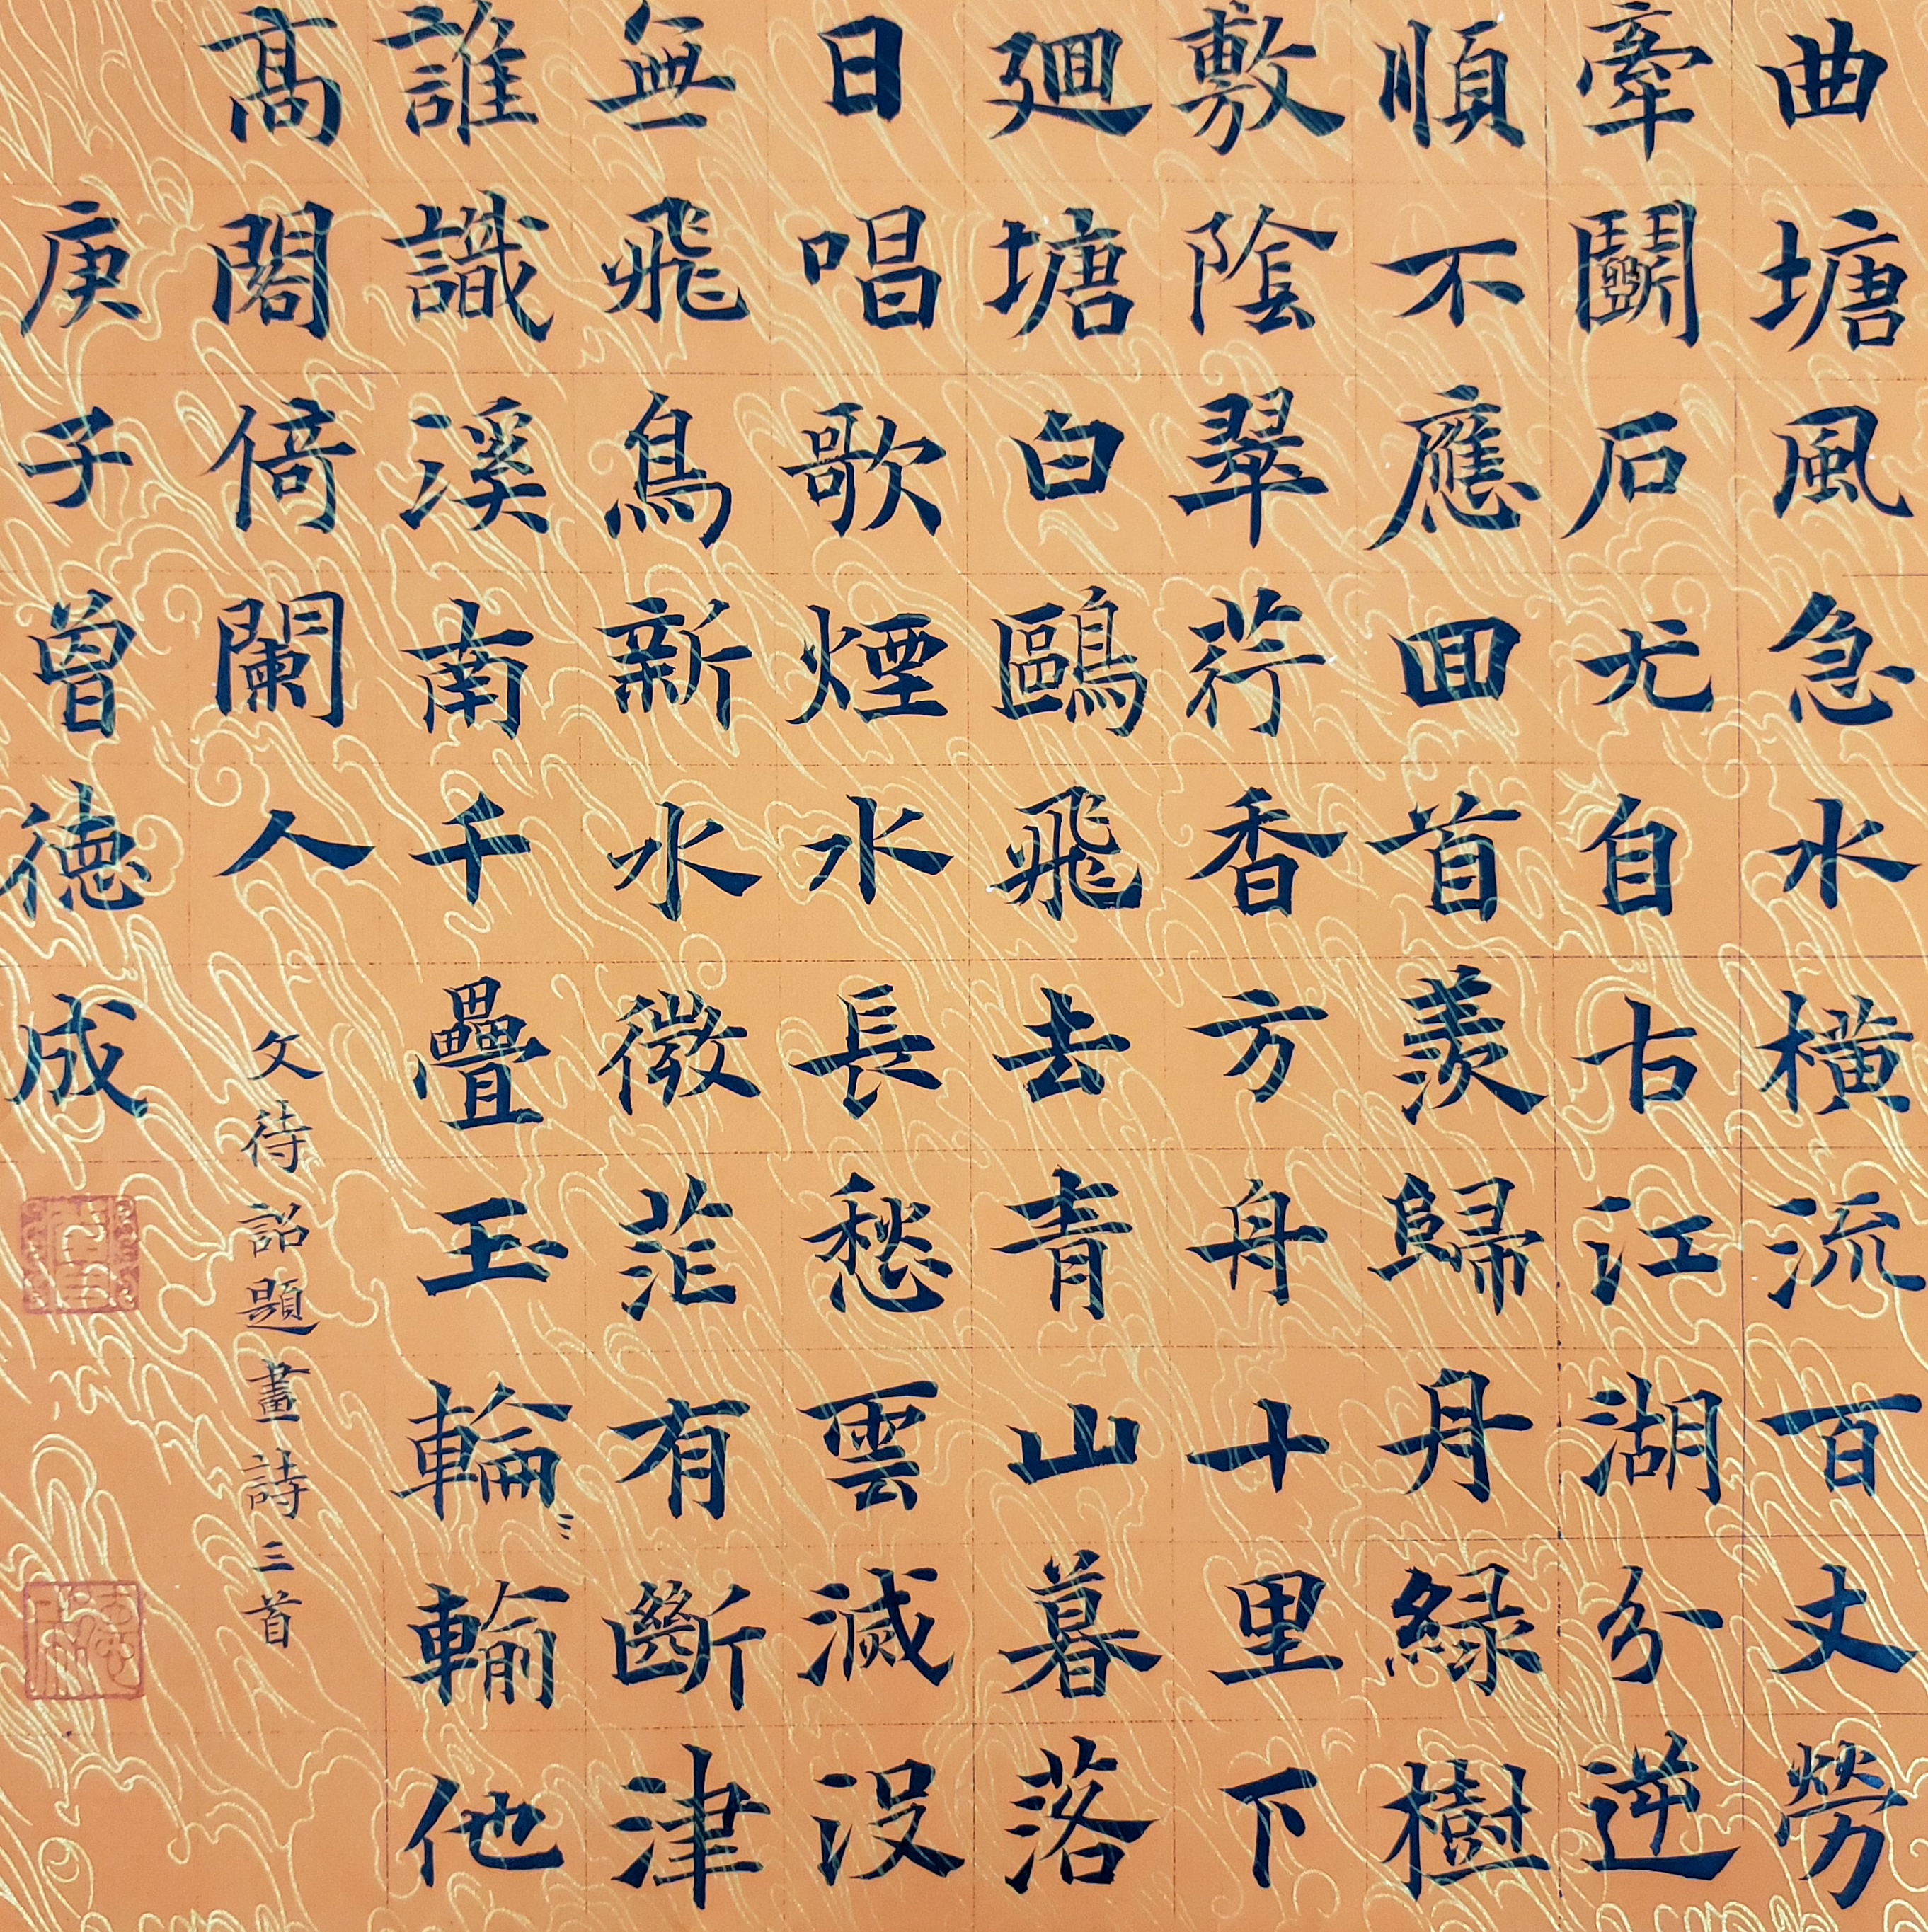 曲塘風急水橫流百丈勞
牽鬭石尤自古江湖分逆
順不應回首羨歸丹綠樹
敷陰翠荇香方舟十里下
廻塘白鷗飛去青山暮落
日唱歌煙水長愁雲滅没
無飛鳥新水微茫有斷津
誰識溪南千疊玉輪輸他
髙閣倚闌人
文待詔題畫詩三首
庚子曾德成